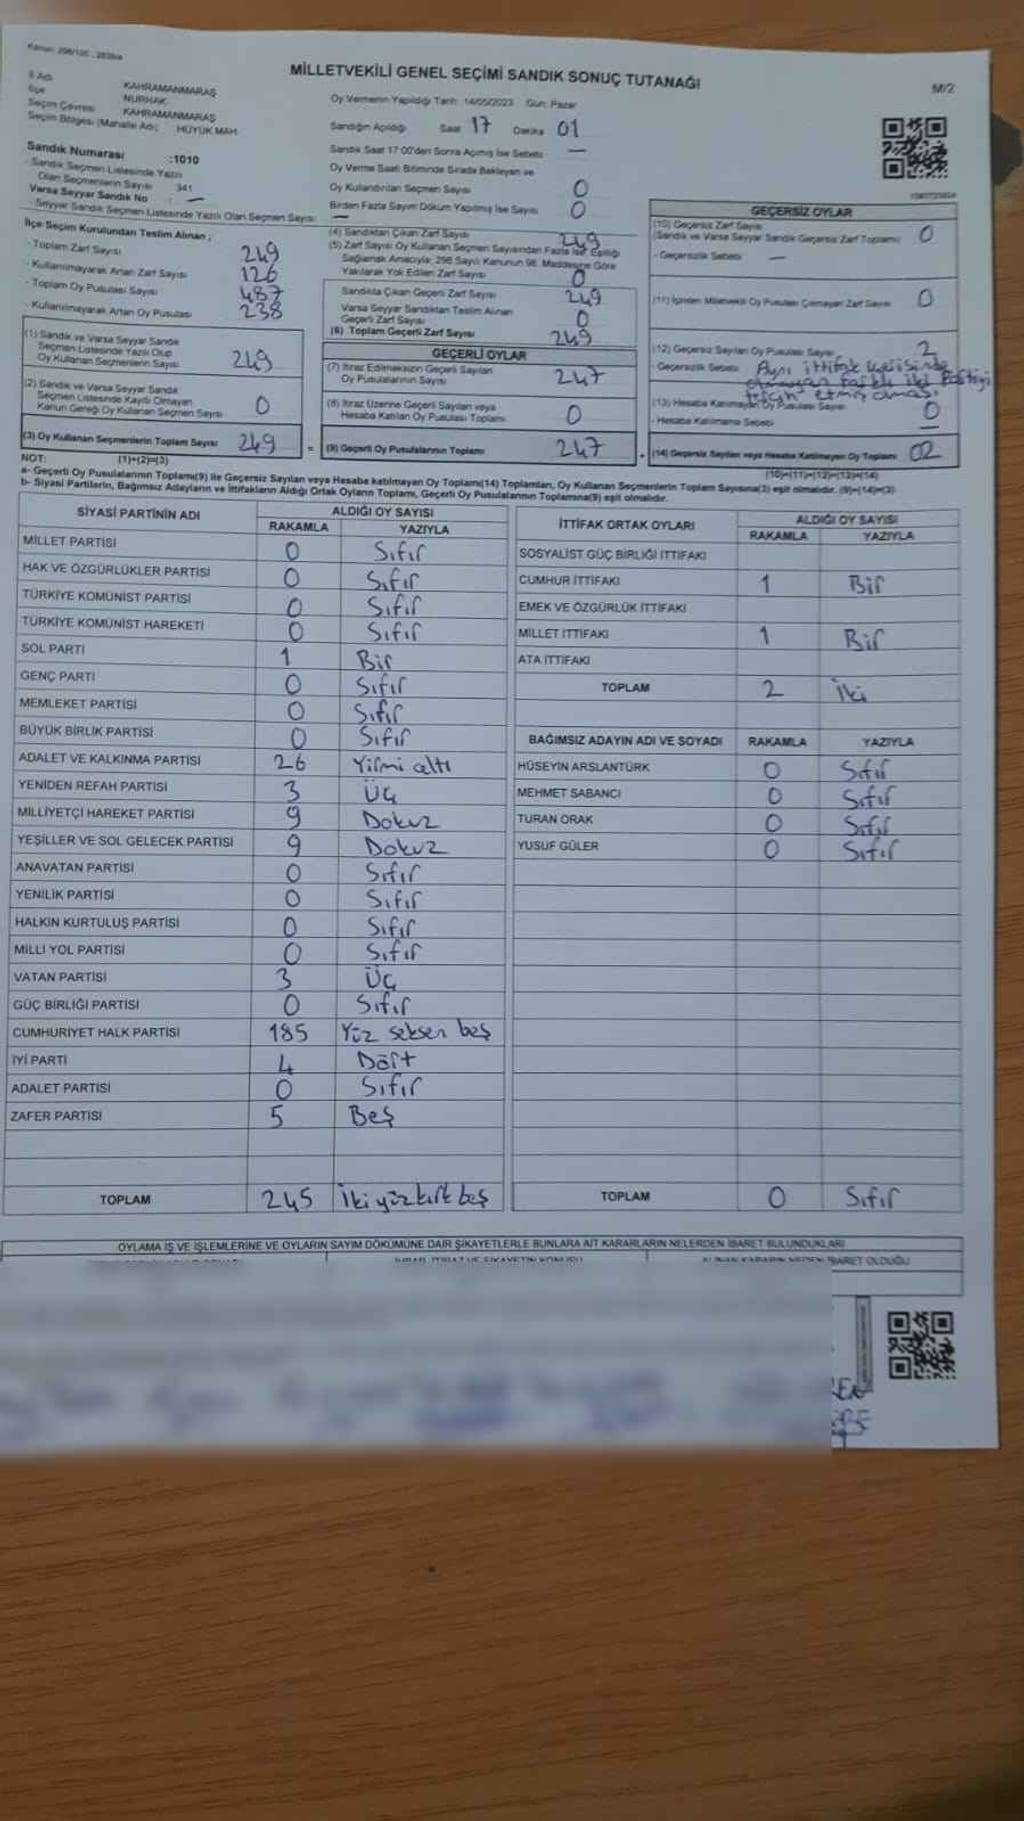 MİLLETVEKİLİ GENEL SEÇİMİ SANDIK SONUÇ TUTANAĞI
M/2
İl Adı KAHRAMANMARAŞ
İlçe NURHAK
Seçim Çevresi KAHRAMANMARAŞ
Seçim Bölgesi (Mahalle Adı) HÜYÜK MAH
Oy Vermenin Yapıldığı Tarih: 14/05/2023 Gün: Pazar
Sandığın Açıldığı Saat 17 Dakika 01
Sandık Saat 17.00'den Sonra Açılmış İse Sebebi —
Oy Verme Saati Bitiminde Sırada Bekleyen ve
Oy Kullandırılan Seçmen Sayısı 0
Birden Fazla Sayım Döküm Yapılmış İse Sayısı 0
Sandık Numarası :1010
- Sandık Seçmen Listesinde Yazılı
Olan Seçmenlerin Sayısı 341
Varsa Seyyar Sandık No : —
- Seyyar Sandık Seçmen Listesinde Yazılı Olan Seçmen Sayısı —
İlçe Seçim Kurulundan Teslim Alınan ;
- Toplam Zarf Sayısı 249
- Kullanılmayarak Artan Zarf Sayısı 126
- Toplam Oy Pusulası Sayısı 487
- Kullanılmayarak Artan Oy Pusulası 238
(1) Sandık ve Varsa Seyyar Sandık
Seçmen Listesinde Yazılı Olup
Oy Kullanan Seçmenlerin Sayısı 249
(2) Sandık ve Varsa Seyyar Sandık
Seçmen Listesinde Kayıtlı Olmayan
Kanun Gereği Oy Kullanan Seçmen Sayısı 0
(3) Oy Kullanan Seçmenlerin Toplam Sayısı 249
(1)+(2)=(3)
(4) Sandıktan Çıkan Zarf Sayısı 249
(5) Zarf Sayısı Oy Kullanan Seçmen Sayısından Fazla İse, Eşitliği
Sağlamak Amacıyla; 298 Sayılı Kanunun 98. Maddesine Göre
Yakılarak Yok Edilen Zarf Sayısı 0
Sandıkta Çıkan Geçerli Zarf Sayısı 249
Varsa Seyyar Sandıktan Teslim Alınan
Geçerli Zarf Sayısı 0
(6) Toplam Geçerli Zarf Sayısı 249
GEÇERLİ OYLAR
(7) İtiraz Edilmeksizin Geçerli Sayılan
Oy Pusulalarının Sayısı 247
(8) İtiraz Üzerine Geçerli Sayılan veya
Hesaba Katılan Oy Pusulası Toplamı 0
= (9) Geçerli Oy Pusulalarının Toplamı 247
GEÇERSİZ OYLAR
(10) Geçersiz Zarf Sayısı
(Sandık ve Varsa Seyyar Sandık Geçersiz Zarf Toplamı) 0
- Geçersizlik Sebebi —
(11) İçinden Milletvekili Oy Pusulası Çıkmayan Zarf Sayısı 0
(12) Geçersiz Sayılan Oy Pusulası Sayısı 2
- Geçersizlik Sebebi Aynı ittifak içerisinde
olmayan farklı iki Partiyi
tercih etmiş olması
(13) Hesaba Katılmayan Oy Pusulası Sayısı 0
- Hesaba Katılmama Sebebi —
(14) Geçersiz Sayılan veya Hesaba Katılmayan Oy Toplamı 02
(10)+(11)+(12)+(13)=(14)
NOT:
a- Geçerli Oy Pusulalarının Toplamı(9) ile Geçersiz Sayılan veya Hesaba katılmayan Oy Toplamı(14) Toplamları, Oy Kullanan Seçmenlerin Toplam Sayısına(3) eşit olmalıdır. (9)+(14)=(3)
b- Siyasi Partilerin, Bağımsız Adayların ve İttifakların Aldığı Ortak Oyların Toplamı, Geçerli Oy Pusulalarının Toplamına(9) eşit olmalıdır.
SİYASİ PARTİNİN ADI ALDIĞI OY SAYISI
RAKAMLA YAZIYLA
MİLLET PARTİSİ 0 Sıfır
HAK VE ÖZGÜRLÜKLER PARTİSİ 0 Sıfır
TÜRKİYE KOMÜNİST PARTİSİ 0 Sıfır
TÜRKİYE KOMÜNİST HAREKETİ 0 Sıfır
SOL PARTİ 1 Bir
GENÇ PARTİ 0 Sıfır
MEMLEKET PARTİSİ 0 Sıfır
BÜYÜK BİRLİK PARTİSİ 0 Sıfır
ADALET VE KALKINMA PARTİSİ 26 Yirmi altı
YENİDEN REFAH PARTİSİ 3 Üç
MİLLİYETÇİ HAREKET PARTİSİ 9 Dokuz
YEŞİLLER VE SOL GELECEK PARTİSİ 9 Dokuz
ANAVATAN PARTİSİ 0 Sıfır
YENİLİK PARTİSİ 0 Sıfır
HALKIN KURTULUŞ PARTİSİ 0 Sıfır
MİLLİ YOL PARTİSİ 0 Sıfır
VATAN PARTİSİ 3 Üç
GÜÇ BİRLİĞİ PARTİSİ 0 Sıfır
CUMHURİYET HALK PARTİSİ 185 Yüz seksen beş
İYİ PARTİ 4 Dört
ADALET PARTİSİ 0 Sıfır
ZAFER PARTİSİ 5 Beş
TOPLAM 245 İki yüz kırk beş
İTTİFAK ORTAK OYLARI ALDIĞI OY SAYISI
RAKAMLA YAZIYLA
SOSYALİST GÜÇ BİRLİĞİ İTTİFAKI
CUMHUR İTTİFAKI 1 Bir
EMEK VE ÖZGÜRLÜK İTTİFAKI
MİLLET İTTİFAKI 1 Bir
ATA İTTİFAKI
TOPLAM 2 İki
BAĞIMSIZ ADAYIN ADI VE SOYADI RAKAMLA YAZIYLA
HÜSEYİN ARSLANTÜRK 0 Sıfır
MEHMET SABANCI 0 Sıfır
TURAN ORAK 0 Sıfır
YUSUF GÜLER 0 Sıfır
TOPLAM 0 Sıfır
OYLAMA İŞ VE İŞLEMLERİNE VE OYLARIN SAYIM DÖKÜMÜNE DAİR ŞİKAYETLERLE BUNLARA AİT KARARLARIN NELERDEN İBARET BULUNDUKLARI